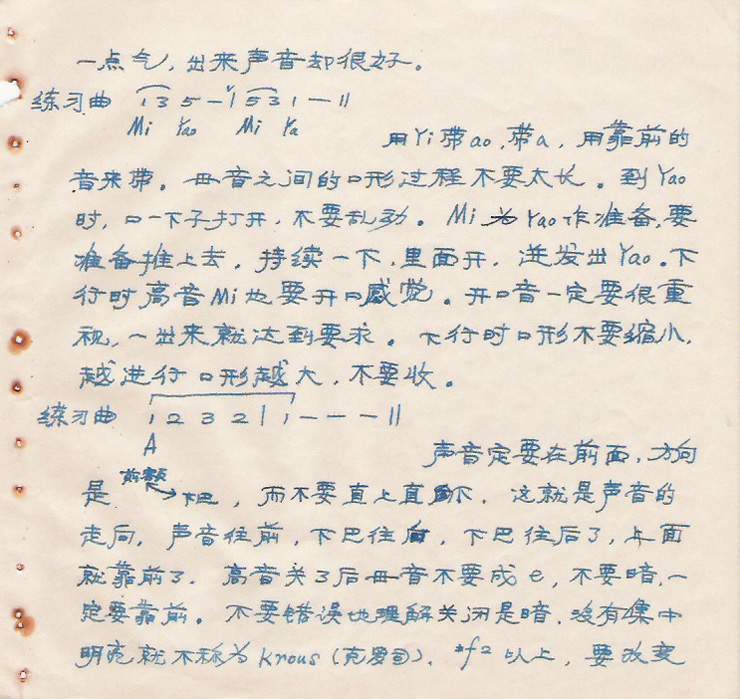 一点气，出来声音却很好。
练习曲 1 3 5 — | 5 3 1 — ||
Mi Yao Mi Ya
用Yi带ao，带a，用靠前的
音来带。母音之间的口形过程不要太长。到Yao
时，口一下子打开，不要乱动。Mi为Yao作准备，要
准备推上去，持续一下，里面开，迸发出Yao。下
行时高音Mi也要开口感觉。开口音一定要很重
视，一出来就达到要求。下行时口形不要缩小，
越进行口形越大，不要收。
练习曲 1 2 3 2 | 1 — — — ||
A
声音定要在前面，方向
前额
是 ，而不要直上直下。这就是声音的
走向，声音往前，下巴往后，下巴往后了，上面
就靠前了。高音关了后母音不要成e，不要暗，一
定要靠前。不要错误地理解关闭是暗，没有集中
明亮就不称为Krous（克罗司）。#f2以上，要改变